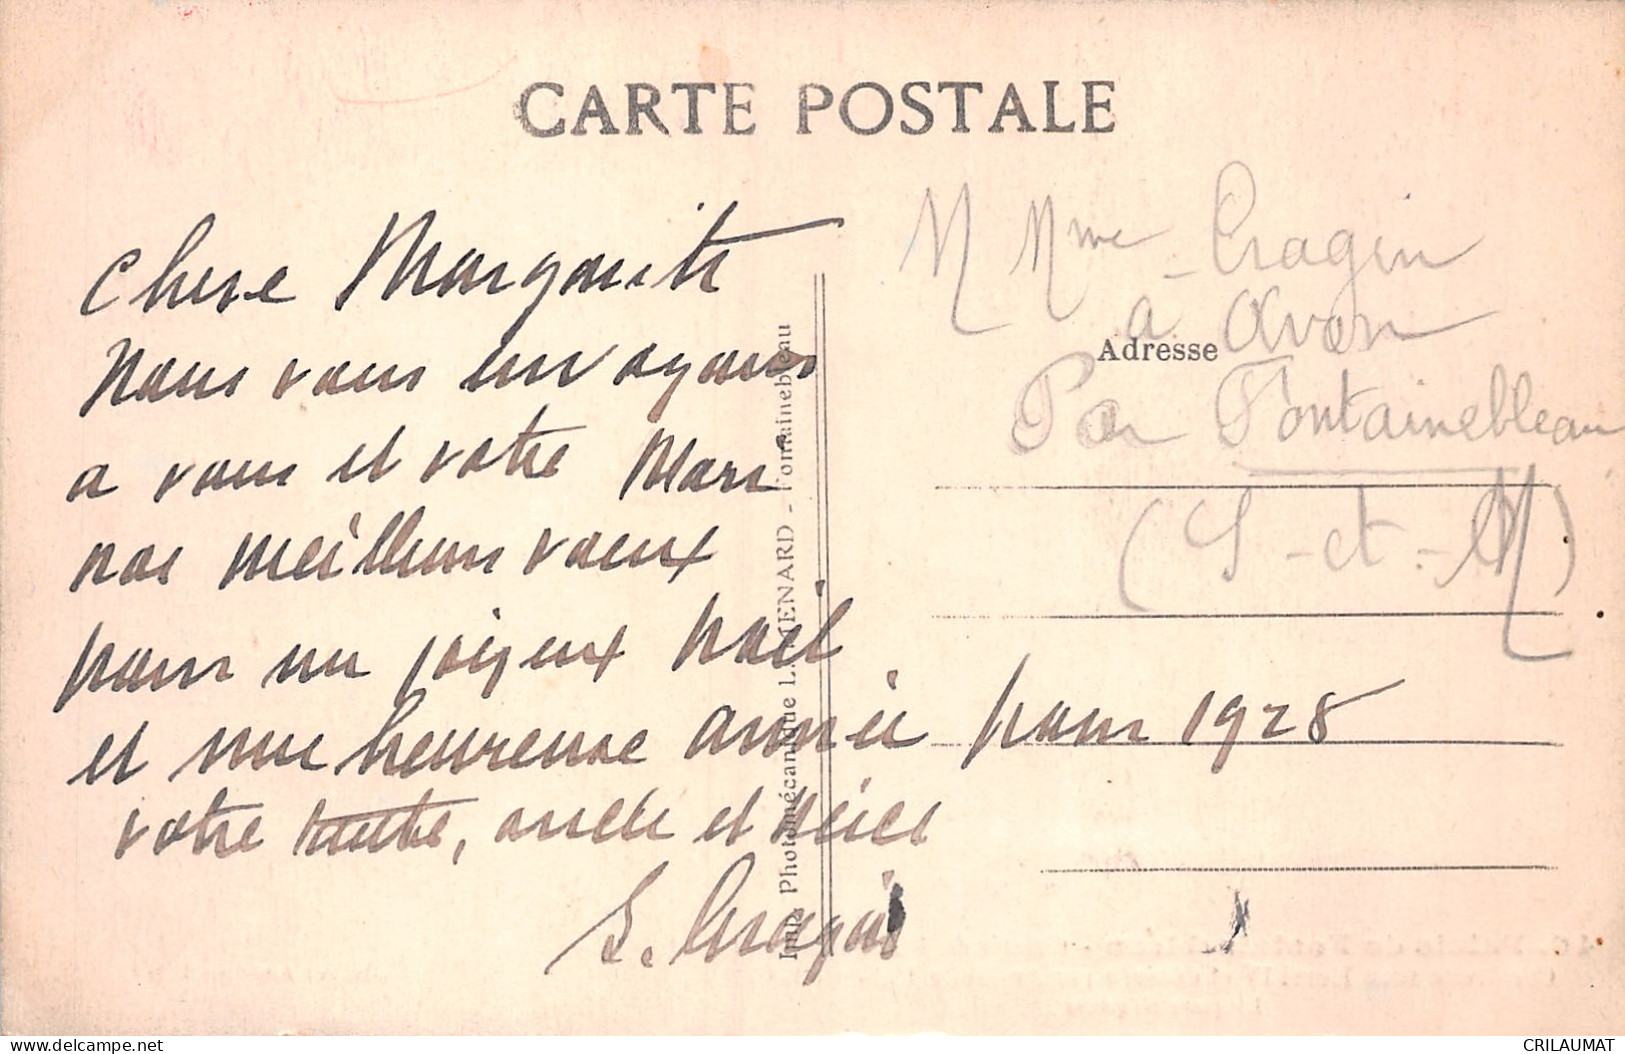 CARTE POSTALE
Chere Marguerite
Nous vous envoyons
a vous et votre Mari
nos meilleurs voeux
pour un joyeux Noel
et une heureuse année pour 1928
votre tante, oncle et
S. Cragin
Imp. Photomécanique L. MENARD - Fontainebleau
M Mme Cragin
a Avon
Adresse
Par Fontainebleau
(S-et-M)
delcampe.net
CRILAUMAT